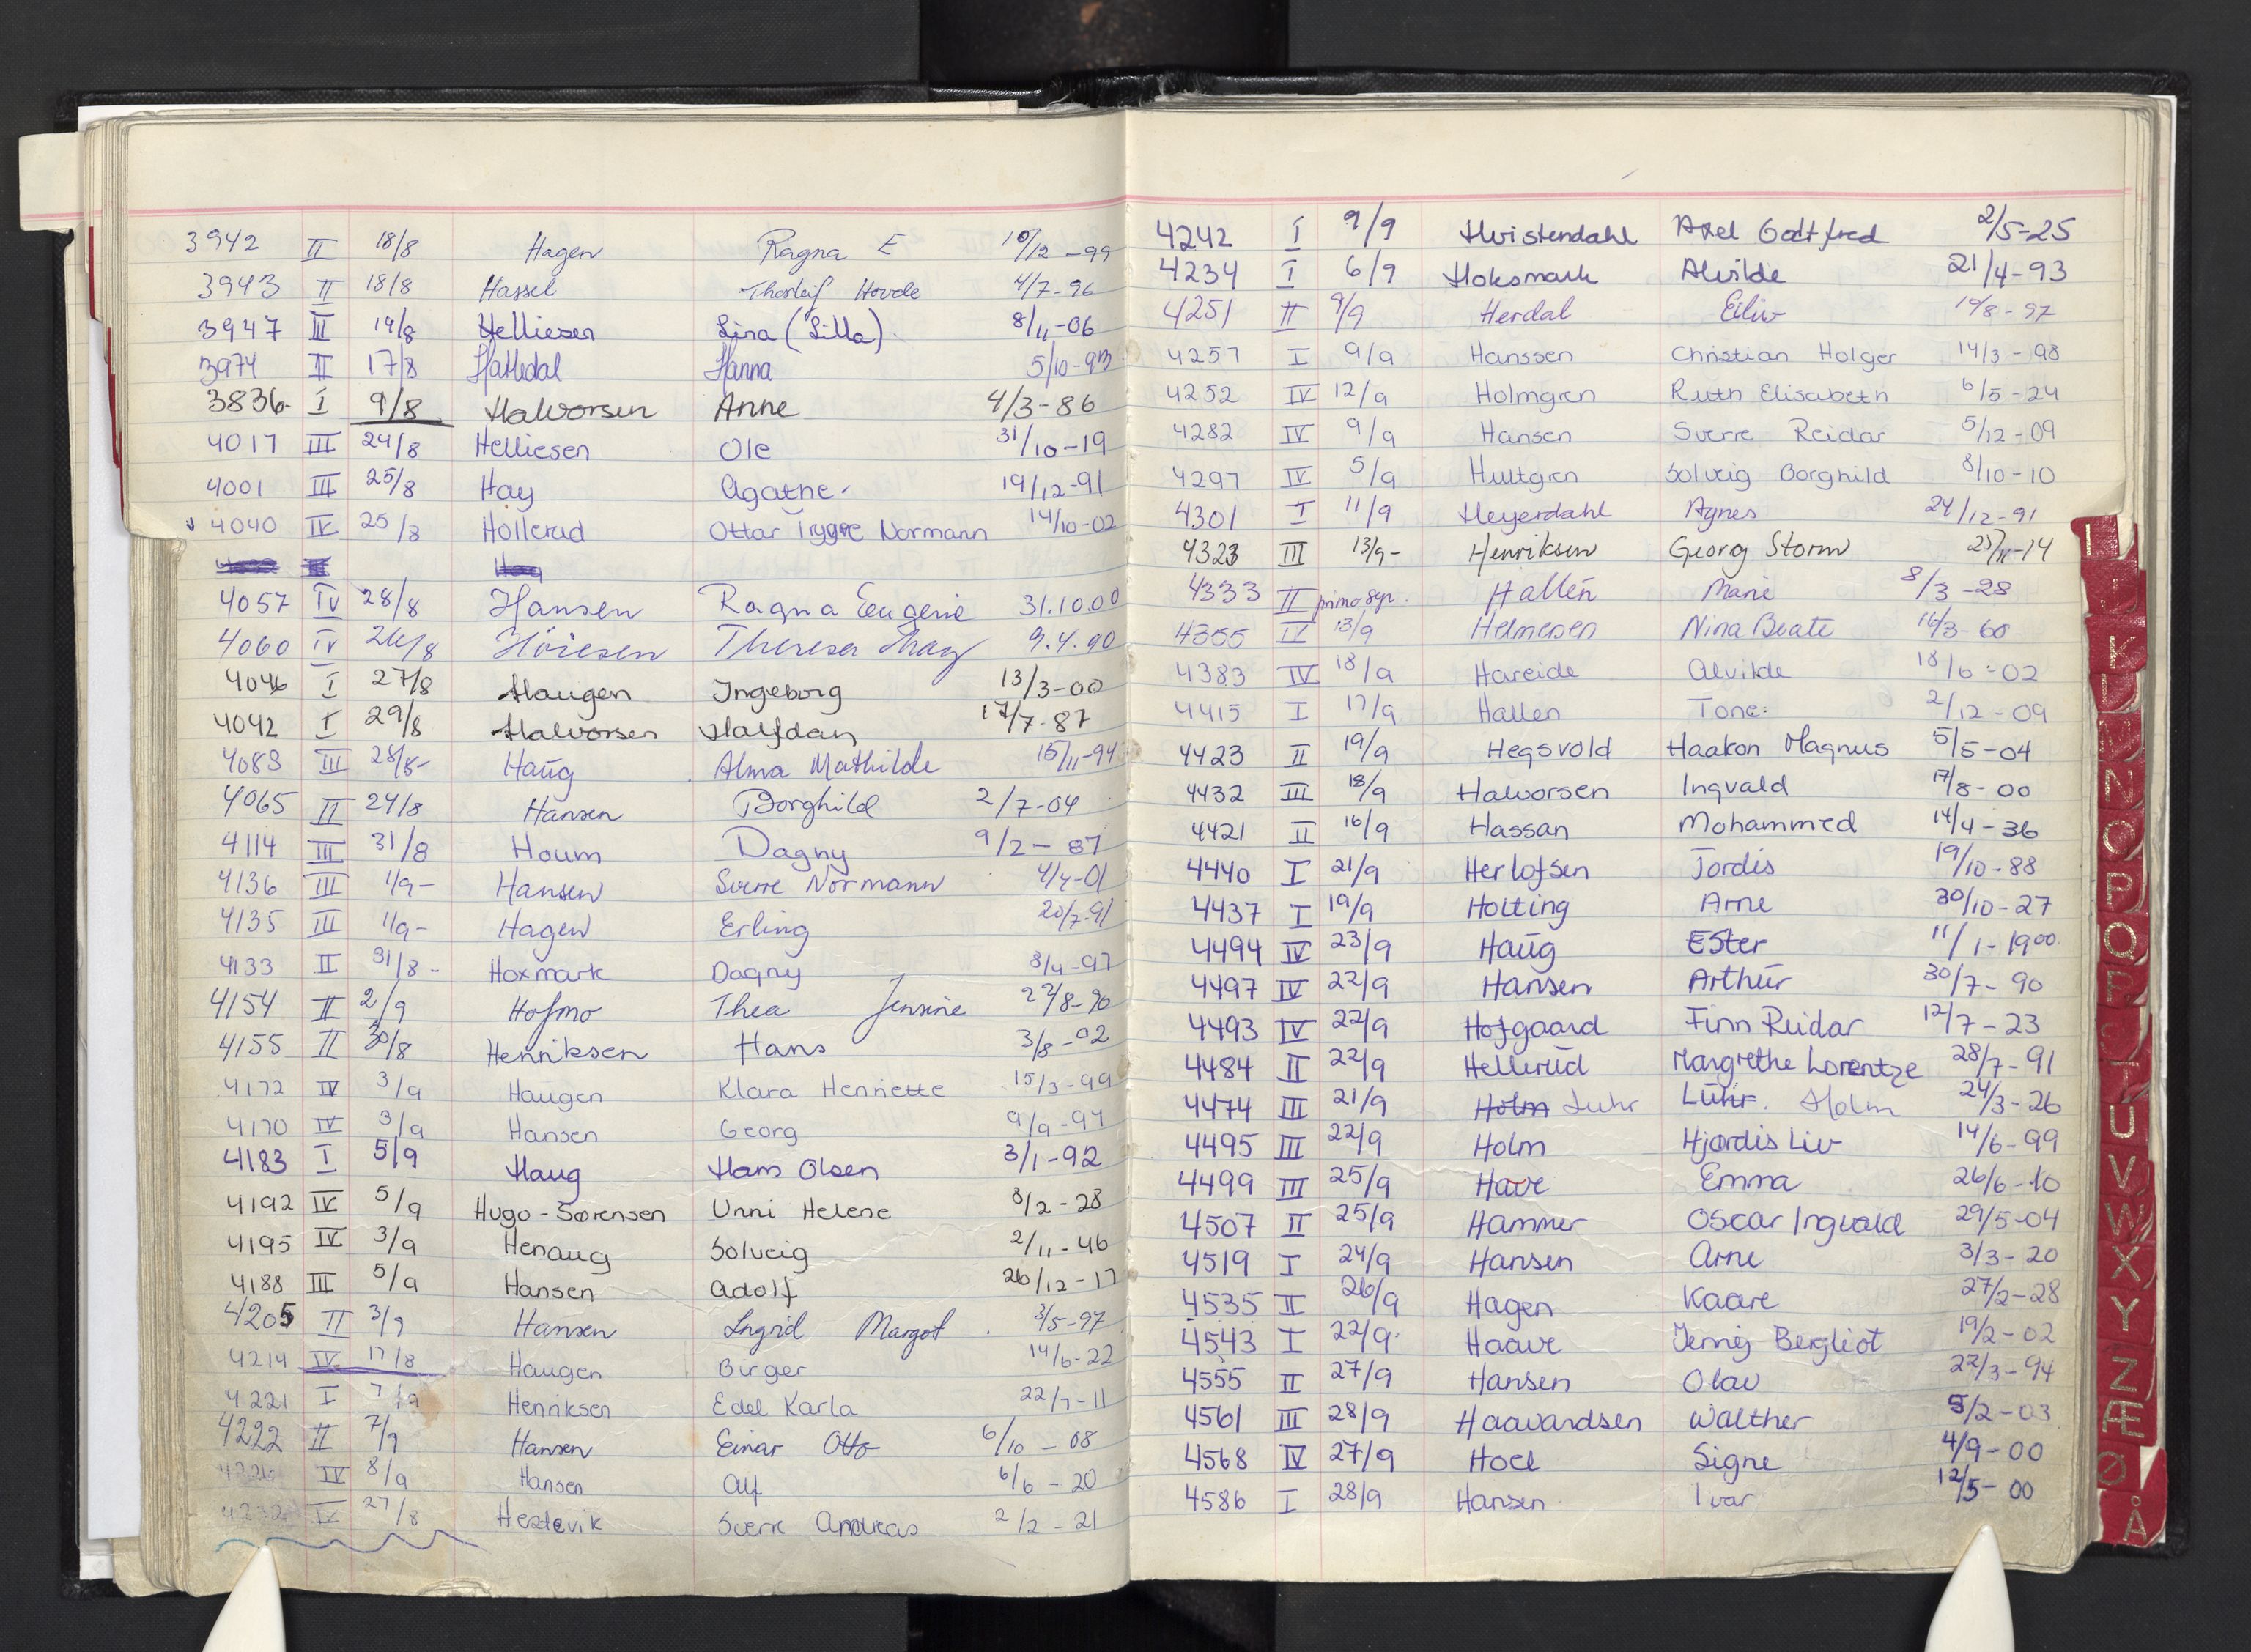 3942 II 18/8 Hagen Ragna E 10/12-99
3943 II 18/8 Hassel Thorleif Hovde 4/7-96
3947 III 19/8 Helliesen Lina (Lilla). 8/11-06
3974 II 17/8 Hatledal Hanna 5/10-93
3836- I 9/8 Halvorsen Anne 4/3-86
4017 III 24/8 Helliesen Ole 31/10-19
4001 III 25/8 Hay Agathe 19/12-91
4040 IV 25/8 Hollerud Ottar Trygve Normann 14/10-02
4057 IV 28/8 Hansen Ragna Eugenie 31.10.00
4060 IV 26/8 Höiesen Theresa May 9.4.90
4046 I 27/8 Haugen Ingeborg 13/3-00
4042 I 29/8 Halvorsen Halfdan 17/7-87
4083 III 28/8- Haug Alma Mathilde 15/11-94
4065 II 24/8 Hansen Borghild 2/7-04
4114 III 31/8 Houm Dagny 9/2-87
4136 III 1/9- Hansen Sverre Normann 4/4-01
4135 III 1/9- Hagen Erling 20/7-91
4133 II 31/8- Hoxmark Dagny 8/4-97
4154 II 2/9 Hofmo Thea Jensine 22/8-90
4155 II 30/8 Henriksen Hans 3/8-02
4172 IV 3/9 Haugen Klara Henriette 15/3-99
4170 IV 3/9 Hansen Georg 9/9-97
4183 I 5/9 Haug Hans Olsen 3/1-92
4192 IV 5/9 Hugo-Sørensen Unni Helene 3/2-28
4195 IV 3/9 Henaug Solveig 2/11-46
4188 III 5/9 Hansen Adolf 26/12-17
4205 II 3/9 Hansen Ingrid Margot 3/5-97
4214 IV 17/8 Haugen Birger 14/6-22
4221 I 7/9 Henriksen Edel Karla 22/7-11
4222 II 7/9 Hansen Einar Otto 6/10-08
IV 8/9 Hansen Alf 6/6-20
4232 IV 27/8 Hestevik Sverre Andreas 2/2-21
4242 I 9/9 Hvistendahl Axel Godtfred 2/5-25
4234 I 6/9 Hoksmark Alvilde 21/4-93
4251 II 9/9 Herdal Eiliv 19/8-97
4257 I 9/9 Hanssen Christian Holger 14/3-98
4252 IV 12/9 Holmgren Ruth Elisabeth 6/5-24
4282 IV 9/9 Hansen Sverre Reidar 5/12-09
4297 IV 5/9 Hultgren Solveig Borghild 8/10-10
4301 I 11/9 Heyerdahl Agnes 24/12-91
4323 III 13/9- Henriksen Georg Storm 25/11-14
4333 II primo sep. Hallén Marie 8/3-28
4355 IV 13/9 Helmersen Nina Beate 16/3-60
4383 IV 18/9 Hareide Alvilde 18/6-02
4415 I 17/9 Hallen Tone 2/12-09
4423 II 19/9 Hegsvold Haakon Magnus 5/5-04
4432 III 18/9 Halvorsen Ingvald 17/8-00
4421 II 16/9 Hassan Mohammed 14/4-36
4440 I 21/9 Herlofsen Jordis 19/10-88
4437 I 19/9 Holting Arne 30/10-27
4494 IV 23/9 Haug Ester 11/1-1900
4497 IV 22/9 Hansen Arthur 30/7-90
4493 IV 22/9 Hofgaard Finn Reidar 12/7-23
4484 II 22/9 Hellerud Margrethe Lorentze 28/7-91
4474 III 21/9 Holm Luhr Luhr. Holm 24/3-26
4495 III 22/9 Holm Hjørdis Liv 14/6-99
4499 III 25/9 Have Emma 26/6-10
4507 II 25/9 Hammer Oscar Ingvald 29/5-04
4519 I 24/9 Hansen Arne 3/3-20
4535 II 26/9 Hagen Kaare 27/2-28
4543 I 22/9 Haave Jenny Bergliot 19/2-02
4555 II 27/9 Hansen Olav 22/3-94
4561 III 28/9 Haavardsen Walther 5/2-03
4568 IV 27/9 Hoel Signe 4/9-00
4586 I 28/9 Hansen Ivar 12/5-00
I
J
K
L
M
N
O
P
Q
R
S
T
U
V
W
X
Y
Z
Æ
Ø
Å